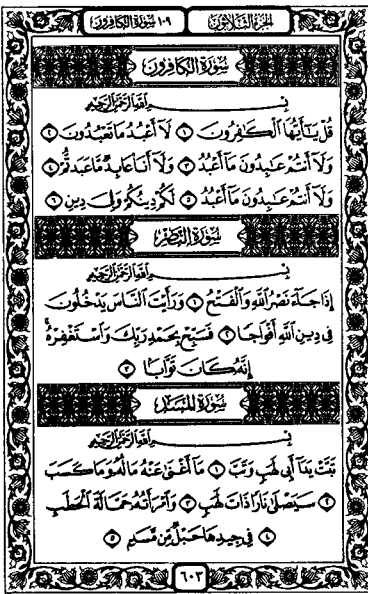 الجزء الثلاثون ١٠٩ سورة الكافرون
سورة الكافرون
بِسْمِ اللَّهِ الرَّحْمَٰنِ الرَّحِيمِ
قُلْ يَٰٓأَيُّهَا ٱلْكَٰفِرُونَ ١ لَآ أَعْبُدُ مَا تَعْبُدُونَ ٢
وَلَآ أَنتُمْ عَٰبِدُونَ مَآ أَعْبُدُ ٣ وَلَآ أَنَا۠ عَابِدٌ مَّا عَبَدتُّمْ ٤
وَلَآ أَنتُمْ عَٰبِدُونَ مَآ أَعْبُدُ ٥ لَكُمْ دِينُكُمْ وَلِىَ دِينِ ٦
سورة النصر
بِسْمِ اللَّهِ الرَّحْمَٰنِ الرَّحِيمِ
إِذَا جَآءَ نَصْرُ ٱللَّهِ وَٱلْفَتْحُ ١ وَرَأَيْتَ ٱلنَّاسَ يَدْخُلُونَ
فِى دِينِ ٱللَّهِ أَفْوَاجًا ٢ فَسَبِّحْ بِحَمْدِ رَبِّكَ وَٱسْتَغْفِرْهُ
إِنَّهُۥ كَانَ تَوَّابًۢا ٣
سورة المسد
بِسْمِ اللَّهِ الرَّحْمَٰنِ الرَّحِيمِ
تَبَّتْ يَدَآ أَبِى لَهَبٍ وَتَبَّ ١ مَآ أَغْنَىٰ عَنْهُ مَالُهُۥ وَمَا كَسَبَ
٢ سَيَصْلَىٰ نَارًا ذَاتَ لَهَبٍ ٣ وَٱمْرَأَتُهُۥ حَمَّالَةَ ٱلْحَطَبِ
٤ فِى جِيدِهَا حَبْلٌ مِّن مَّسَدٍۭ ٥
٦٠٣